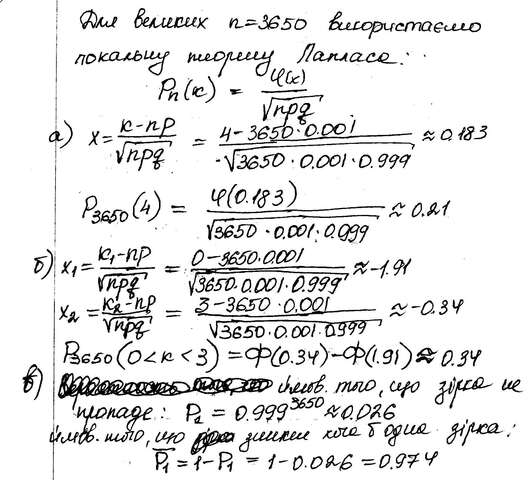 Для великих n=3650 використаємо
локальну теорему Лапласа:
Pₙ(к) = φ(x)/√npq
а) x = (к-np)/√npq = (4-3650·0.001)/√3650·0.001·0.999 ≈ 0.183
P₃₆₅₀(4) = φ(0.183)/√3650·0.001·0.999 ≈ 0.21
б) x₁ = (к₁-np)/√npq = (0-3650·0.001)/√3650·0.001·0.999 ≈ -1.91
x₂ = (к₂-np)/√npq = (3-3650·0.001)/√3650·0.001·0.999 ≈ -0.34
P₃₆₅₀(0<к<3) = Ф(0.34)-Ф(1.91) ≈ 0.34
в) ймов. того, що зірка не
пропаде: P₁ = 0.999³⁶⁵⁰ ≈ 0.026
ймов. того, що зникн хоча б одна зірка:
P̅₁ = 1-P₁ = 1-0.026 = 0.974